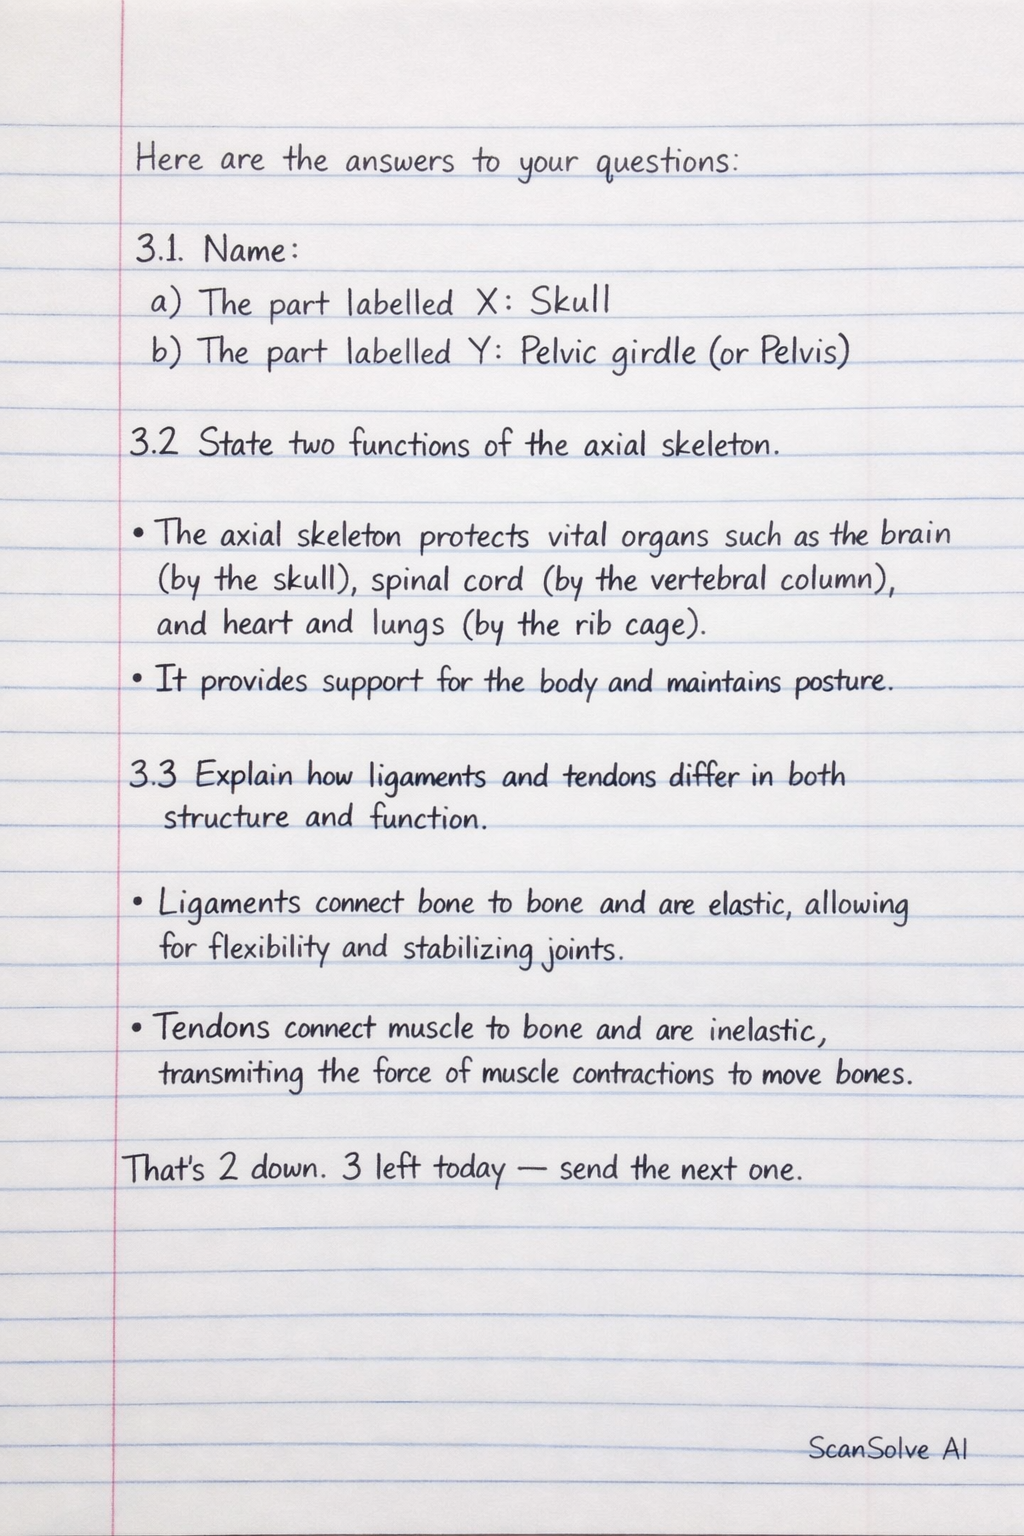 Here are the answers to your questions:
3.1. Name:
a) The part labelled X: Skull
b) The part labelled Y: Pelvic girdle (or Pelvis)
3.2 State two functions of the axial skeleton.
• The axial skeleton protects vital organs such as the brain
(by the skull), spinal cord (by the vertebral column),
and heart and lungs (by the rib cage).
• It provides support for the body and maintains posture.
3.3 Explain how ligaments and tendons differ in both
structure and function.
• Ligaments connect bone to bone and are elastic, allowing
for flexibility and stabilizing joints.
• Tendons connect muscle to bone and are inelastic,
transmiting the force of muscle contractions to move bones.
That's 2 down. 3 left today — send the next one.
ScanSolve AI